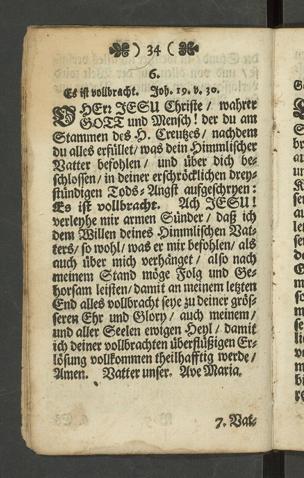 ) 34 (
6.
Es ist vollbracht. Joh. 19. v. 30.
O HErr JESU Christe / wahrer
GOTT und Mensch! der du am
Stammen des H. Creutzes / nachdem
du alles erfüllet / was dein Himmlischer
Vatter befohlen / und über dich be-
schlossen / in deiner erschröcklichen drey-
stündigen Tods-Angst aufgeschryen:
Es ist vollbracht. Ach JESU!
verleyhe mir armen Sünder / daß ich
dem Willen deines Himmlischen Vat-
ters / so wohl / was er mir befohlen / als
auch über mich verhänget / also nach
meinem Stand möge Folg und Ge-
horsam leisten / damit an meinem letzten
End alles vollbracht seye zu deiner grös-
seren Ehr und Glory / auch meinem /
und aller Seelen ewigen Heyl / damit
ich deiner vollbrachten überflüßigen Er-
lösung vollkommen theilhafftig werde /
Amen. Vatter unser. Ave Maria.
7. Vat-